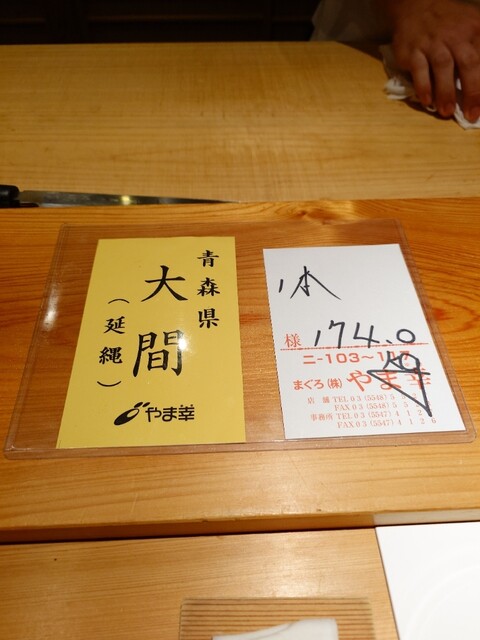 青森県
大間
（延縄）
やま幸
様 174.0
ニ-103～1
まぐろ(株) やま幸
店舗 TEL 03 (5548) 5
FAX 03 (5548) 5
事務所 TEL 03 (5547) 4 1 2
FAX 03 (5547) 4 1 2 6